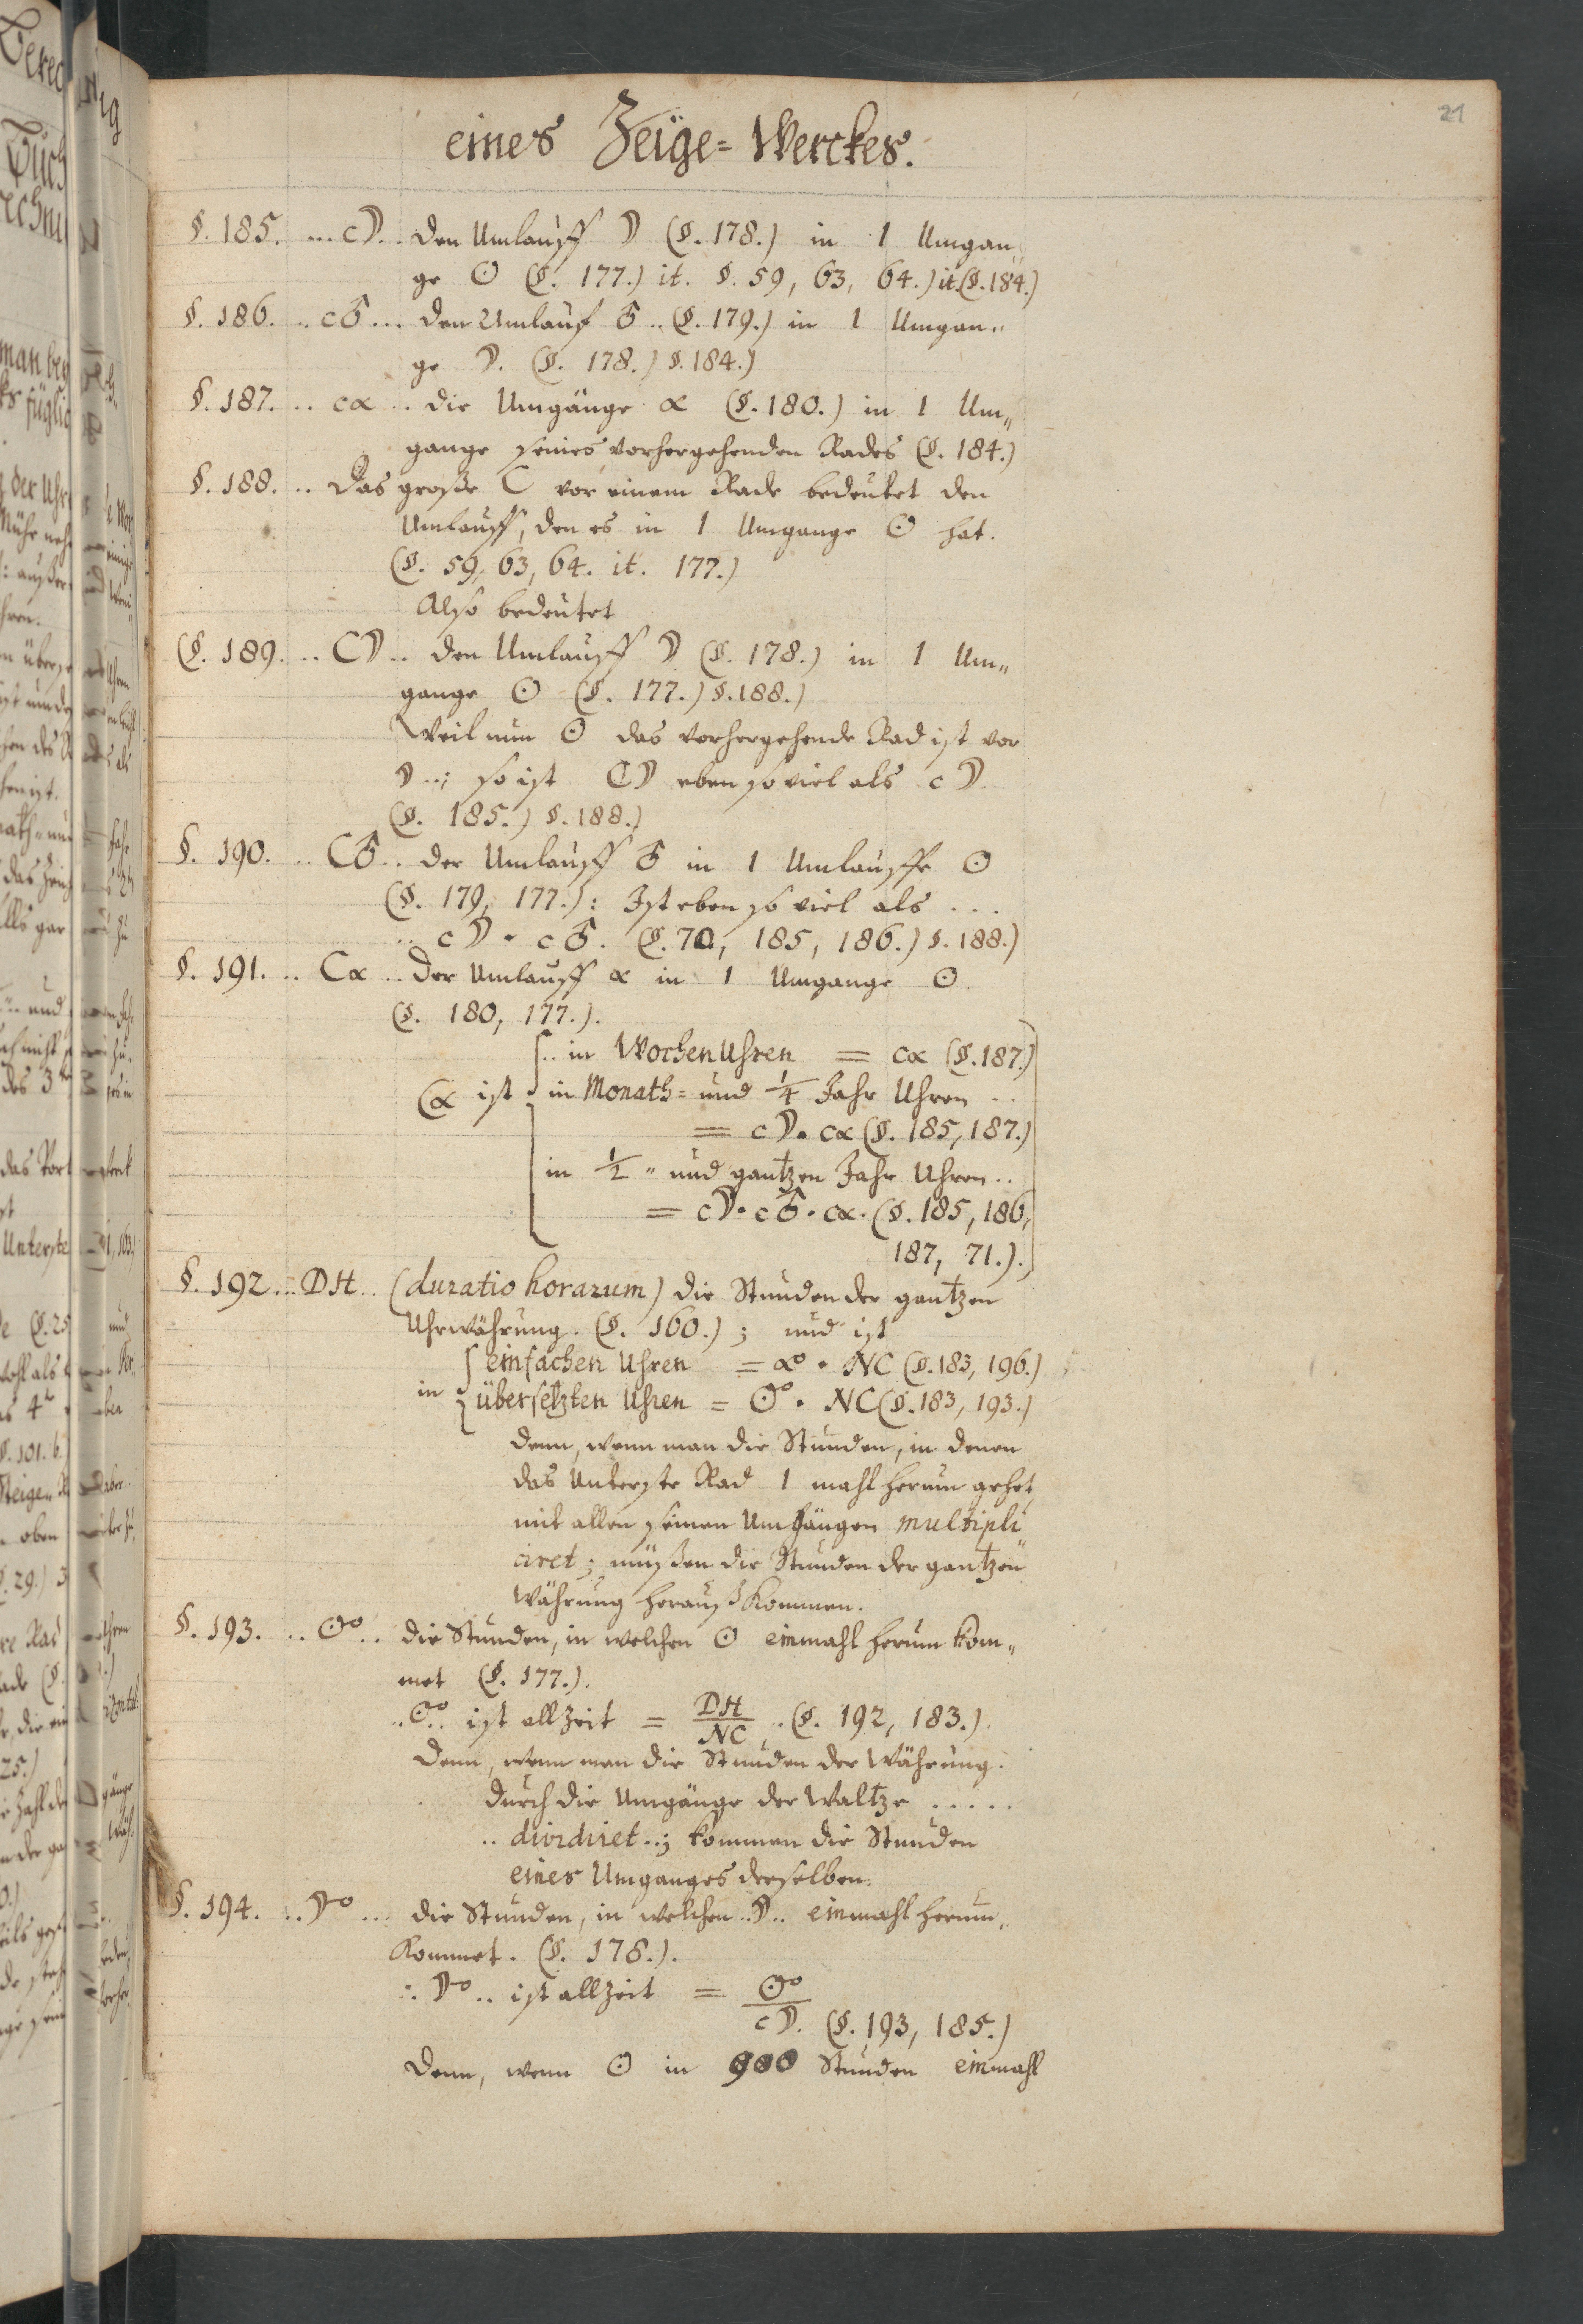 21
eines Zeige= Werckes.
§. 185. ... c☽.. den Umlauff ☽ (§. 178.) in 1 Umgan„
ge ☉ (§. 177.) it. §. 59, 63, 64.) it. (§. 184.)
§. 186. .. c♁ ... den Umlauf ♁ .. (§. 179.) in 1 Umgan„
ge ☽. (§. 178.) §. 184.)
§. 187. .. cα .. die Umgänge α (§. 180.) in 1 Um„
gange seines vorhergehenden Rades (§. 184.)
§. 188. .. Das große C vor einem Rade bedeutet den
Umlauff, den es in 1 Umgange ☉ hat.
(§. 59, 63, 64. it. 177.)
Also bedeutet
(§. 189. .. C☽ .. den Umlauff ☽ (§. 178.) in 1 Um„
gange ☉ (§. 177.) §. 188.)
Weil nun ☉ das vorhergehende Rad ist vor
☽ ..; so ist C☽ eben so viel als c☽.
(§. 185.) §. 188.)
§. 190. .. C♁ .. der Umlauff ♁ in 1 Umlauffe ☉
(§. 179, 177.): Ist eben so viel als ...
.. c☽ • c♁. (§. 70, 185, 186.) §. 188.)
§. 191. .. Cα .. der Umlauff α in 1 Umgange ☉
(§. 180, 177.).
.. in WochenUhren = cα (§. 187.)
Cα ist in Monath= und 1/4 Jahr Uhren ..
= c☽ • cα (§. 185, 187.)
in 1/2 „ und gantzen Jahr Uhren ..
= c☽ • c♁ • cα. (§. 185, 186,
187, 71.).
§. 192 ... DH .. (duratio horarum) die Stunden der gantzen
Uhrwährung. (§. 160.); und ist
einfachen Uhren = α° • NC (§. 183, 196.)
in
übersetzten Uhren = ☉° • NC (§. 183, 193.)
denn, wenn man die Stunden, in denen
das Unterste Rad 1 mahl herum gehet,
mit allen seinen Umgängen multipli
ciret; müßen die Stunden der gantzen
Währung herauß kommen.
§. 193. .. ☉° .. die Stunden, in welchen ☉ einmahl herum kom„
met (§. 177.).
.. ☉° .. ist allzeit = DH/NC .. (§. 192, 183.).
Denn, wenn man die Stunden der Währung
durch die Umgänge der Waltze .....
.. dividiret ..; kommen die Stunden
eines Umganges derselben.
§. 194. .. ☽° ... die Stunden, in welchen .. ☽ .. einmahl herum„
kommet. (§. 178.).
.. ☽° .. ist allzeit = ☉°/c☽. (§. 193, 185.)
Denn, wenn ☉ in 900 Stunden einmahl